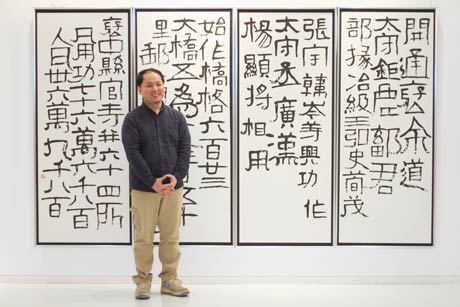 開通褒余道
太守鉅鹿鄐君
部掾冶級王弘史荀茂
張宇韓岑等興功作
太守丞廣漢
楊顯將相用
始作橋格六百卅三
大橋五為
里郵
褒中縣官寺并六十四所
凡用功七十六萬六千八百
人瓦卅六萬九千八百